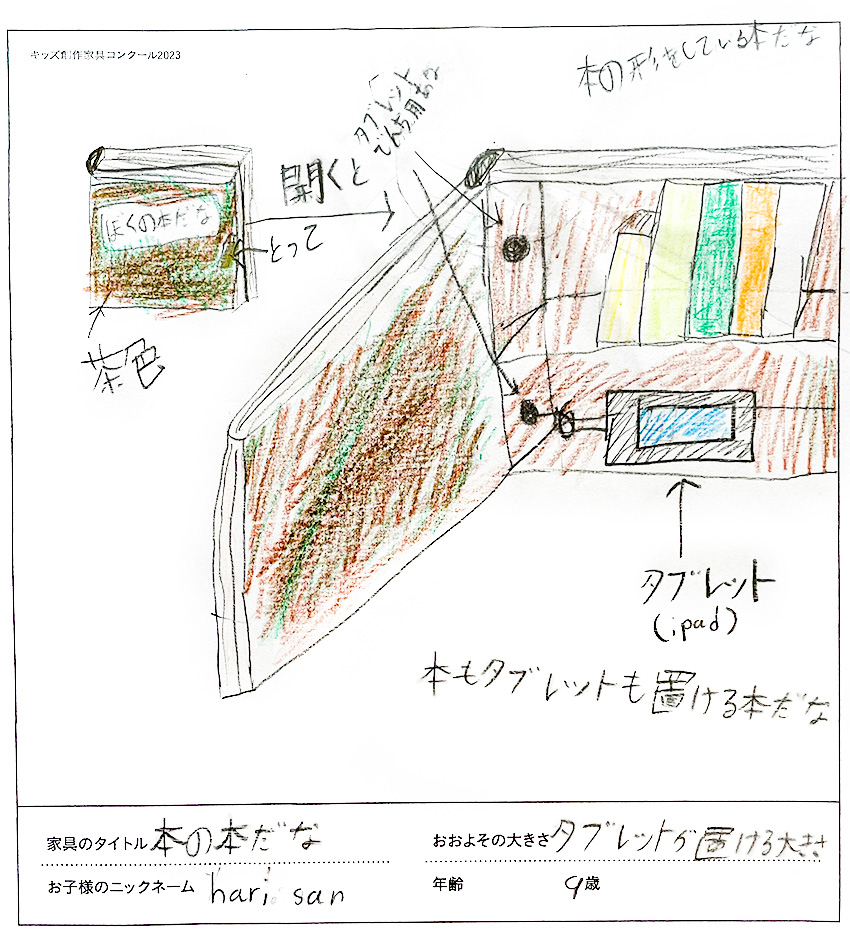 キッズ創作家具コンクール2023
本の形をしている本だな
タブレット
でんち用あな
開くと
ぼくの本だな
とって
茶色
タブレット
(ipad)
本もタブレットも置ける本だな
家具のタイトル 本の本だな
おおよその大きさ タブレットが置ける大きさ
お子様のニックネーム hari san
年齢 9歳